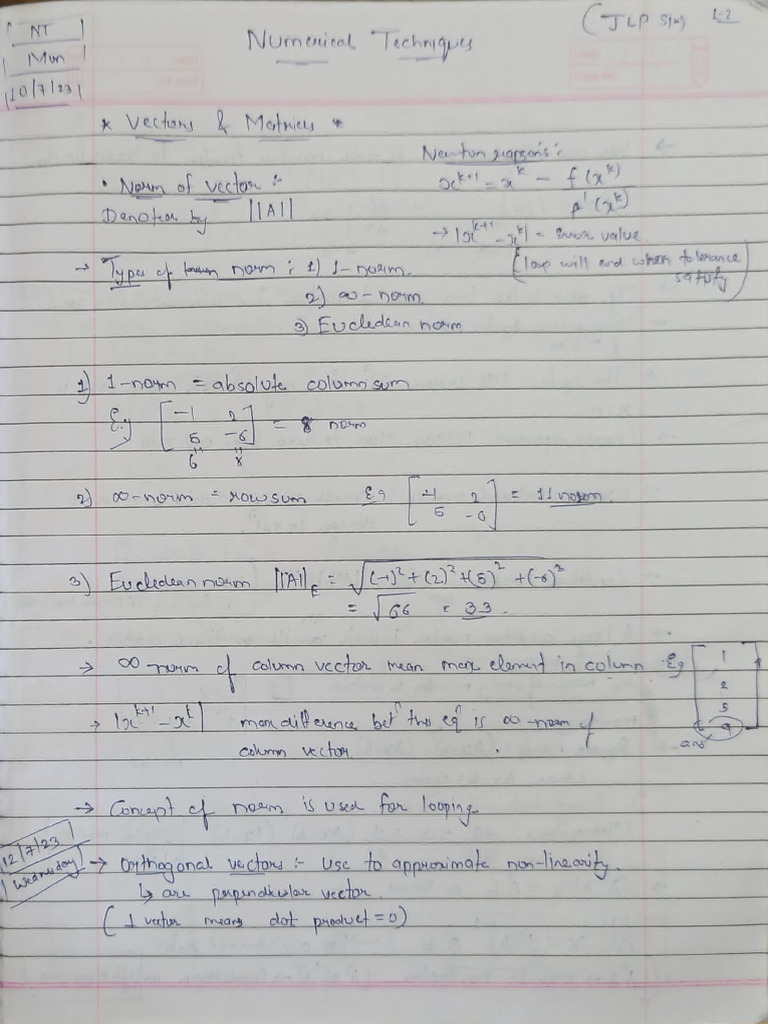 NT
Mon
10/7/23
(JLP Sir) L-2
Numerical Techniques
* Vectors & Matrices *
Newton rapson's :
• Norm of vector :-
x^{k+1} = x^k - f(x^k) / f'(x^k)
Denoter by ||A||
→ |x^{k+1} - x^k| = Error value
(loop will end when tolerance satisfy)
→ Types of norm : 1) 1-norm.
2) ∞-norm.
3) Eucledean norm
1) 1-norm = absolute column sum
E.g [-1 2
5 -6] = 8 norm
6 8
2) ∞-norm = row sum E.g [-1 2
5 -6] = 11 norm
3) Eucledean norm ||A||_E = √(-1)²+(2)²+(5)²+(-6)²
= √66 = 33.
→ ∞ norm of column vector mean max element in column E.g [1
2
5
9]
ans
→ |x^{k+1} - x^k| max difference betⁿ the eqⁿ is ∞-norm of
column vector.
→ Concept of norm is used for looping.
12/7/23
Wednesday
→ Orthogonal vectors :- Use to approximate non-linearity.
↳ are perpendicular vector.
(⊥ vector means dot product = 0)